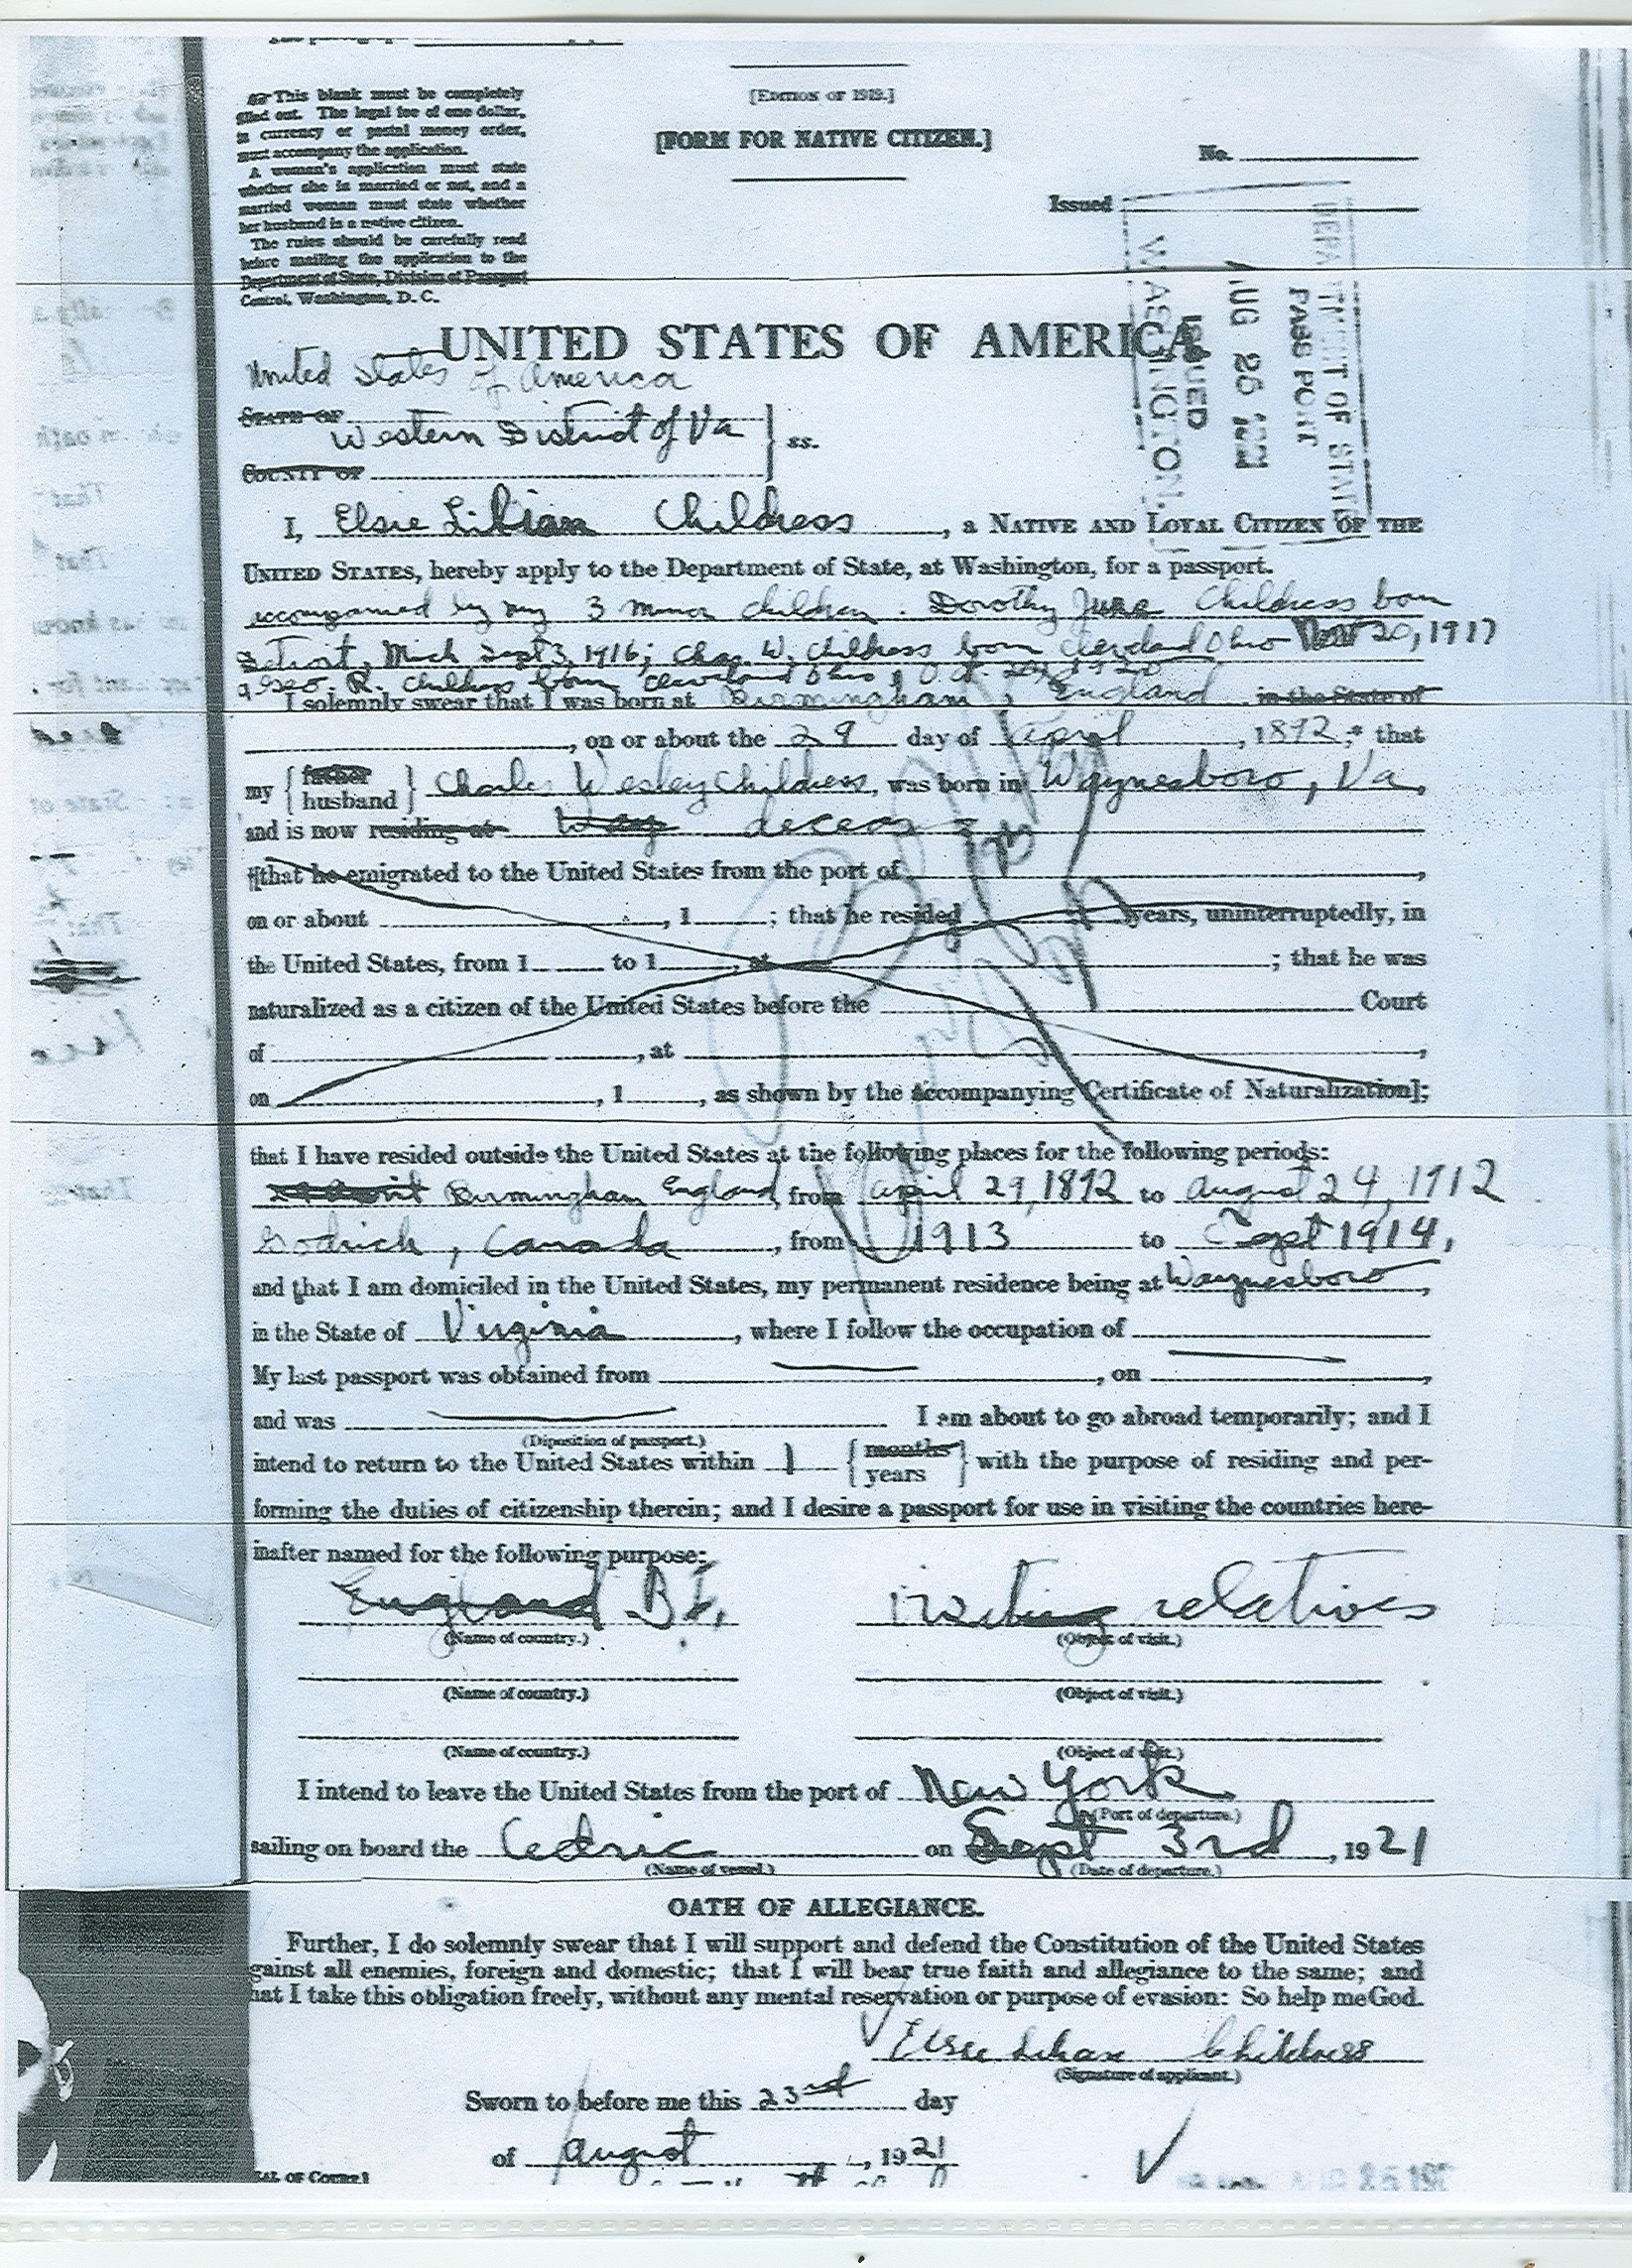 [EDITION OF 1919.]
[FORM FOR NATIVE CITIZEN.]
This blank must be completely
filled out. The legal fee of one dollar,
in currency or postal money order,
must accompany the application.
A woman's application must state
whether she is married or not, and a
married woman must state whether
her husband is a native citizen.
The rules should be carefully read
before mailing the application to the
Department of State, Division of Passport
Control, Washington, D. C.
No.
Issued
DEPARTMENT OF STATE
PASSPORT
AUG 26 1921
ISSUED
WASHINGTON.
UNITED STATES OF AMERICA
United States of America
STATE OF
Western District of Va
COUNTY OF
ss.
I, Elsie Lilian Childress, a NATIVE AND LOYAL CITIZEN OF THE
UNITED STATES, hereby apply to the Department of State, at Washington, for a passport.
accompanied by my 3 minor children. Dorothy June Childress born
Detroit, Mich Sept 3, 1916; Chas. W. Childress born Cleveland Ohio Nov 20, 1917
& Geo. R. Childress born Cleveland Ohio Oct. 1920
I solemnly swear that I was born at Birmingham, England in the State of
, on or about the 29 day of April, 1892;* that
my { father husband } Charles Wesley Childress, was born in Waynesboro, Va,
and is now residing at Way deceas
[that he emigrated to the United States from the port of ,
on or about , 1 ; that he resided years, uninterruptedly, in
the United States, from 1 to 1 , at ; that he was
naturalized as a citizen of the United States before the Court
of , at ,
on , 1 , as shown by the accompanying Certificate of Naturalization];
that I have resided outside the United States at the following places for the following periods:
Birmingham England, from April 29, 1892 to August 24, 1912
Godrich, Canada, from 1913 to Sept 1914,
and that I am domiciled in the United States, my permanent residence being at Waynesboro,
in the State of Virginia, where I follow the occupation of
My last passport was obtained from , on ,
and was I am about to go abroad temporarily; and I
(Diposition of passport.)
intend to return to the United States within 1 { months years } with the purpose of residing and per-
forming the duties of citizenship therein; and I desire a passport for use in visiting the countries here-
inafter named for the following purpose:
England B.I. visiting relatives
(Name of country.) (Object of visit.)
(Name of country.) (Object of visit.)
(Name of country.) (Object of visit.)
I intend to leave the United States from the port of New York
(Port of departure.)
sailing on board the Cedric on Sept 3rd, 1921
(Name of vessel.) (Date of departure.)
OATH OF ALLEGIANCE.
Further, I do solemnly swear that I will support and defend the Constitution of the United States
against all enemies, foreign and domestic; that I will bear true faith and allegiance to the same; and
that I take this obligation freely, without any mental reservation or purpose of evasion: So help me God.
Elsie Lilian Childress
(Signature of applicant.)
Sworn to before me this 23rd day
of August, 1921